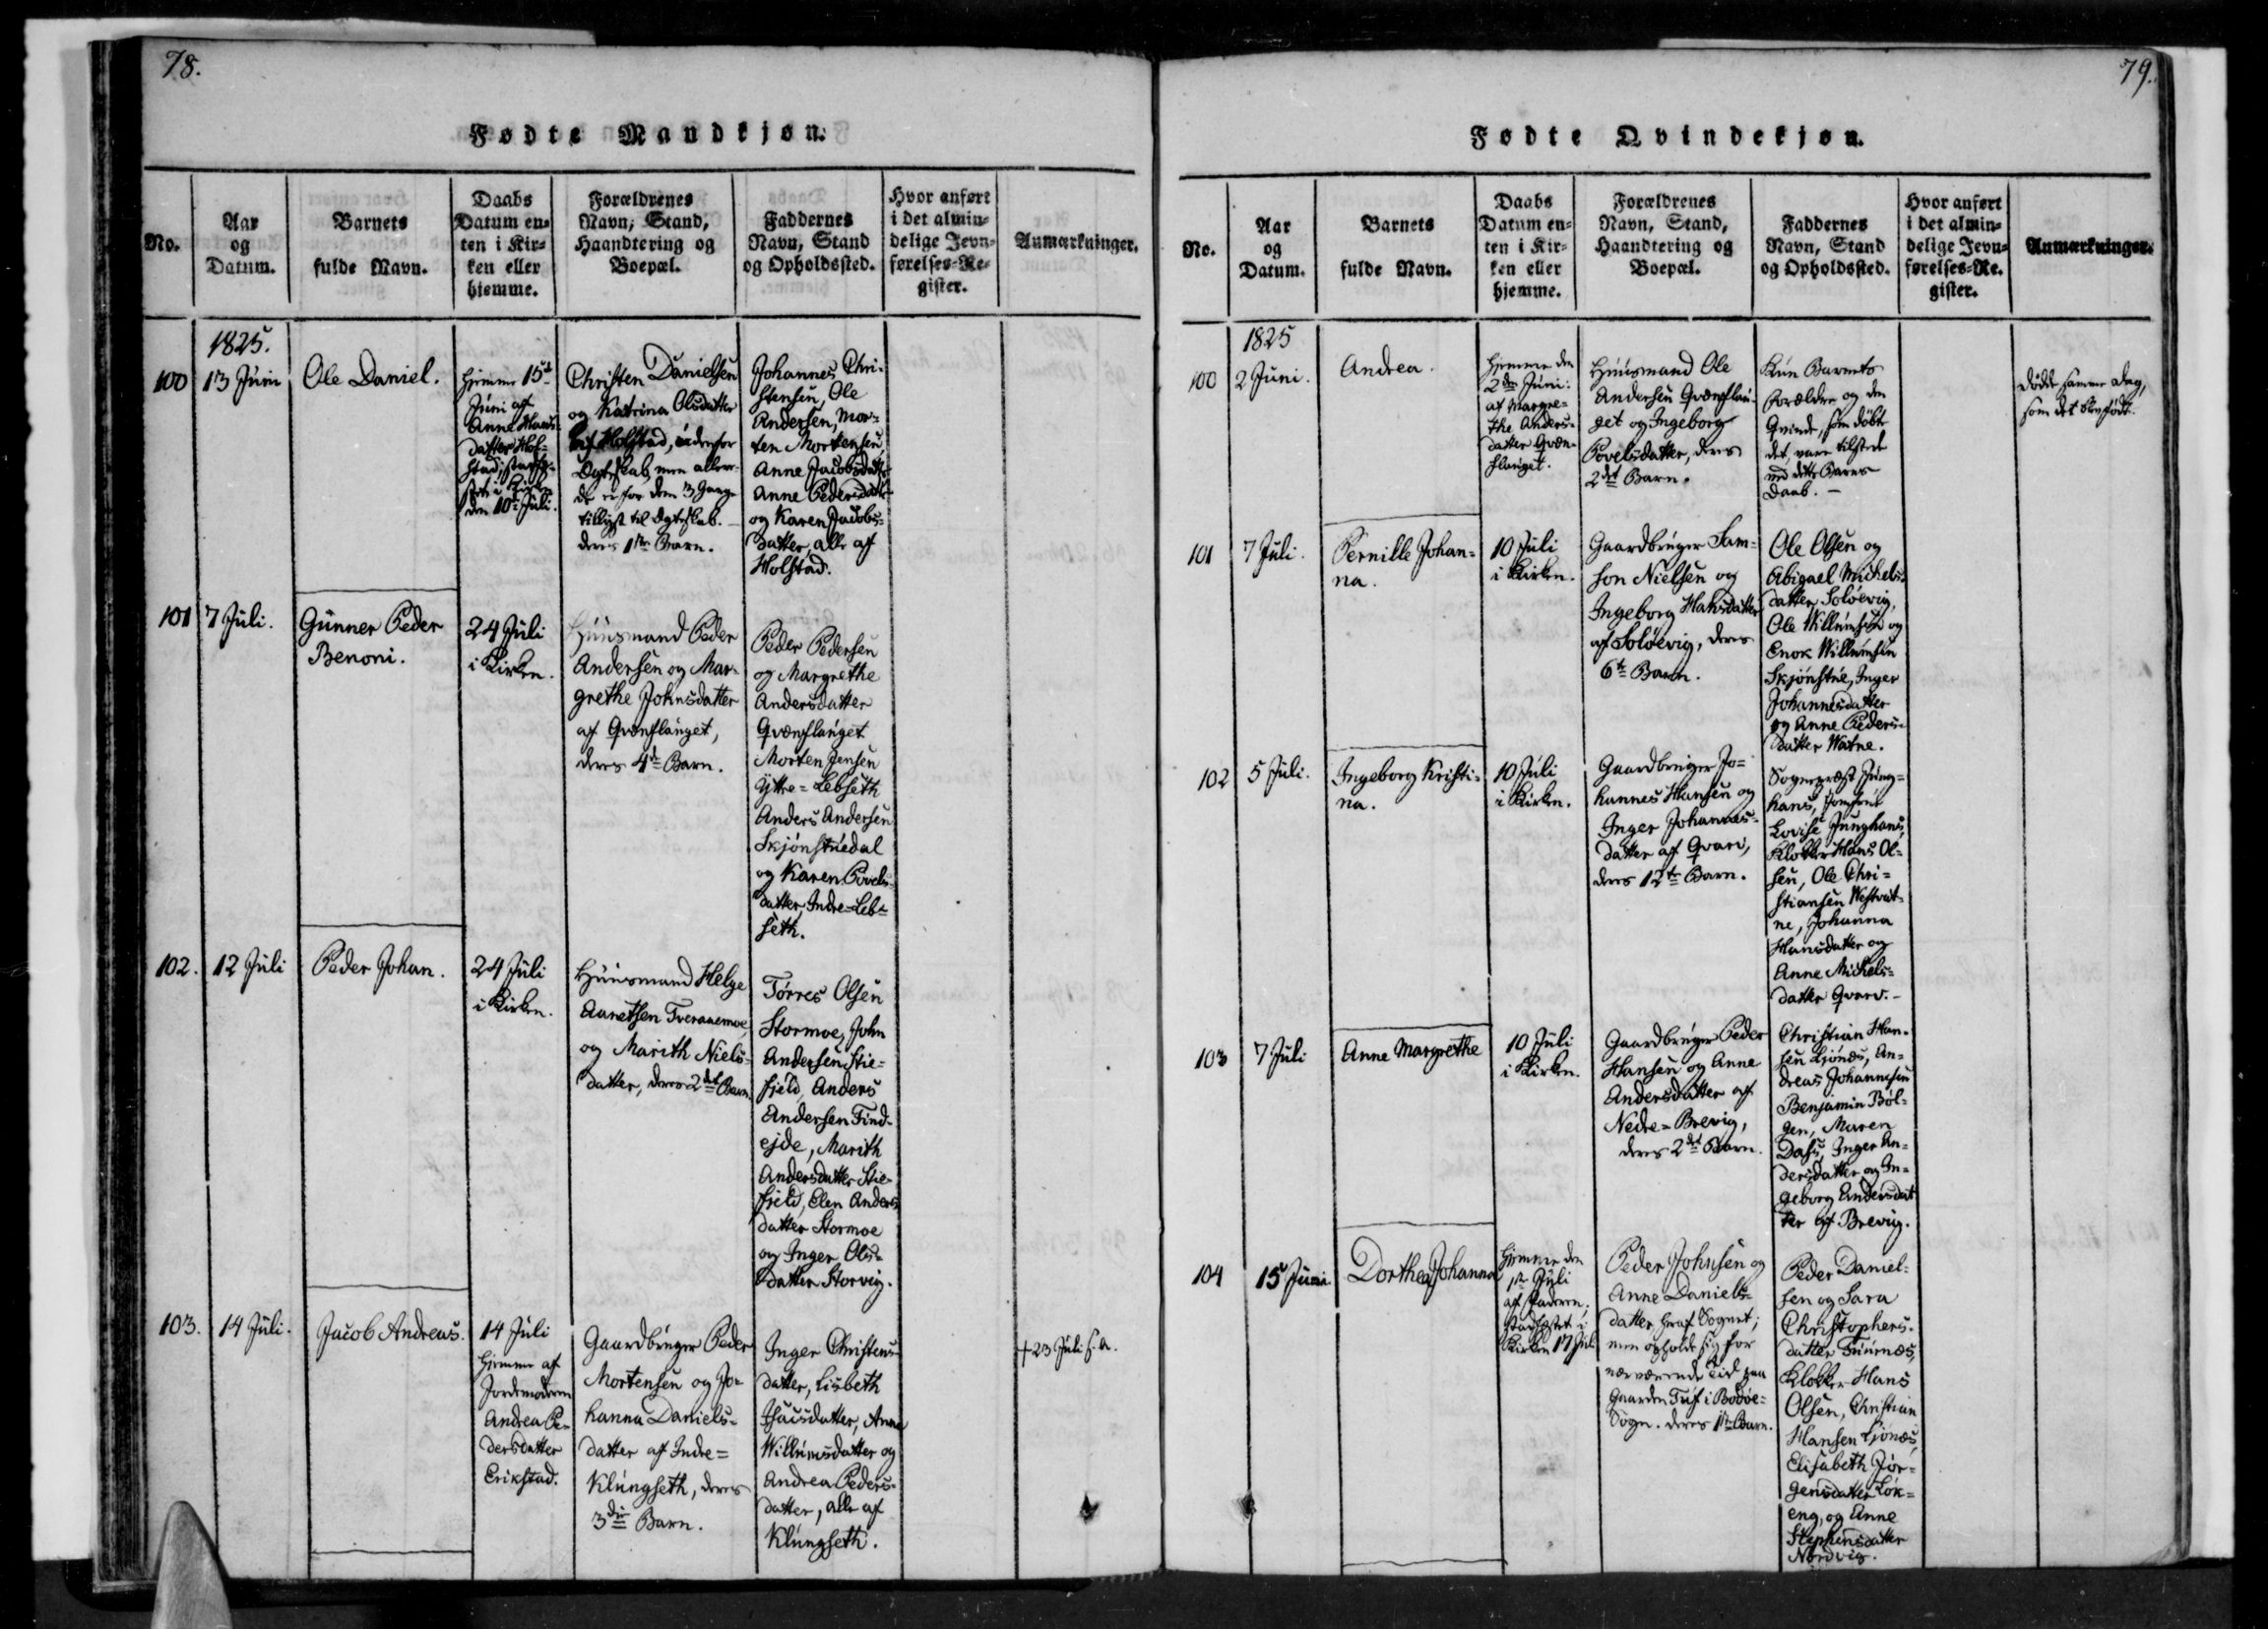 78.
Fødte Mandkjøn.
No.
Aar
og
Datum.
Barnets
fulde Navn.
Daabs
Datum en-
ten i Kir-
ken eller
hjemme.
Forældrenes
Navn, Stand,
Haandtering og
Boepæl.
Faddernes
Navn, Stand
og Opholdssted.
Hvor anført
i det almin-
delige Jevn-
førelses-Re-
gister.
Anmærkninger.
1825.
100
13 Juni
Ole Daniel.
hjemme 15de
Juni af
Anne Hans-
datter Hol-
stad, stadfæ-
stet i Kirken
den 10de Juli.
Christen Danielsen
og Katrina Olsdatter
af Holstad, udenfor
Ægteskab, men allere-
de er for dem 3 Gange
tillyst til Ægteskab. -
deres 1ste Barn.
Johannes Chri-
stensen, Ole
Andersen, Mor-
ten Mortensen,
Anne Jacobsdatter
Anne Pedersdatter
og Karen Jacobs-
datter, alle af
Holstad.
101
7 Juli.
Gunner Peder
Benoni.
24 Juli
i Kirken.
Huusmand Peder
Andersen og Mar-
grethe Johnsdatter
af Qvænflauget,
deres 4de Barn.
Peder Pedersen
og Margrethe
Andersdatter
Qvænflauget
Morten Jensen
Yttre-Lebseth
Anders Andersen
Skjønstuedal
og Karen Povels-
datter, Indre-Leb-
seth.
102.
12 Juli
Peder Johan.
24 Juli
i Kirken.
Huusmand Helge
Aanethsen Tveraaemoe,
og Marith Niels-
datter, deres 2det Barn.
Tørres Olsen
Stormoe, John
Andersen Stie-
fjeld, Anders
Andersen Find-
ejde, Marith
Andersdatter Stie-
fjeld, Elen Anders
datter Stormoe
og Inger Ols-
datter Storvig.
103.
14 Juli.
Jacob Andreas.
14 Juli
hjemme af
Jordemoderen
Andrea Pe-
dersdatter
Erikstad.
Gaardbruger Peder
Mortensen og Jo-
hanna Daniels-
datter af Indre-
Klungseth, deres
3die Barn.
Inger Christens-
datter, Lisbeth
Isaisdatter, Anne
Willumsdatter og
Andrea Peders-
datter, alle af
Klungseth.
+ 23 Juli s. A.
79.
Fødte Qvindekjøn.
No.
Aar
og
Datum.
Barnets
fulde Navn.
Daabs
Datum en-
ten i Kir-
ken eller
hjemme.
Forældrenes
Navn, Stand,
Haandtering og
Boepæl.
Faddernes
Navn, Stand
og Opholdssted.
Hvor anført
i det almin-
delige Jevn-
førelses-Re-
gister.
Anmærkninger.
1825
100
2 Juni.
Andrea.
hjemme den
2den Juni
af Margre-
the Anders-
datter Qvæn-
flauget.
Huusmand Ole
Andersen Qvænflau-
get og Ingeborg
Povelsdatter, deres
2det Barn.
Kun Barnets
Forældre og den
Qvinde, som døbte
det, vare tilstede
ved dette Barns
Daab. -
Døde samme Dag,
som det blev født.
101
7 Juli.
Pernille Johan-
na.
10 Juli
i Kirken.
Gaardbruger Sam-
son Nielsen og
Ingeborg Hansdatter
af Soløevig, deres
6te Barn.
Ole Olsen og
Abigael Michels-
datter Soløevig,
Ole Willumsen og
Enok Willumsen
Skjønstue, Inger
Johannesdatter
og Anne Peders-
datter Watne.
102
5 Juli.
Ingeborg Kristi-
na.
10 Juli
i Kirken.
Gaardbruger Jo-
hannes Hansen og
Inger Johannes-
datter af Qvarv,
deres 12te Barn.
Sognepræst Jung-
hans, Jomfrue
Lovise Junghans,
Klokker Hans Ol-
sen, Ole Chri-
stiansen Westvat-
ne, Johanna
Hansdatter og
Anne Michels-
datter Qvarv. -
103
7 Juli
Anne Margrethe
10 Juli
i Kirken.
Gaardbruger Peder
Hansen og Anne
Andersdatter af
Nedre-Brevig,
deres 2det Barn.
Christian Han-
sen Ljønæs, An-
dreas Johannesen
Benjamin Bøl-
gen, Maren
Dass, Inger An-
dersdatter og In-
geborg Andersdat
ter af Brevig.
104
15 Juni.
Dorthea Johanna
hjemme den
1ste Juli
af Faderen;
stadfæstet i
Kirken 17 Juli
Peder Johnsen og
Anne Daniels-
datter, her af Sognet;
men opholde sig for
nærværende Tid paa
Gaarden Tuf i Bodøe-
Sogn. deres 1ste Barn.
Peder Daniel-
sen og Sara
Christophers-
datter Fuurnæs,
Klokker Hans
Olsen, Christian
Hansen Ljønæs,
Elisabeth Jør-
gensdatter Løk-
eng, og Anne
Stephensdatter
Nordvig.